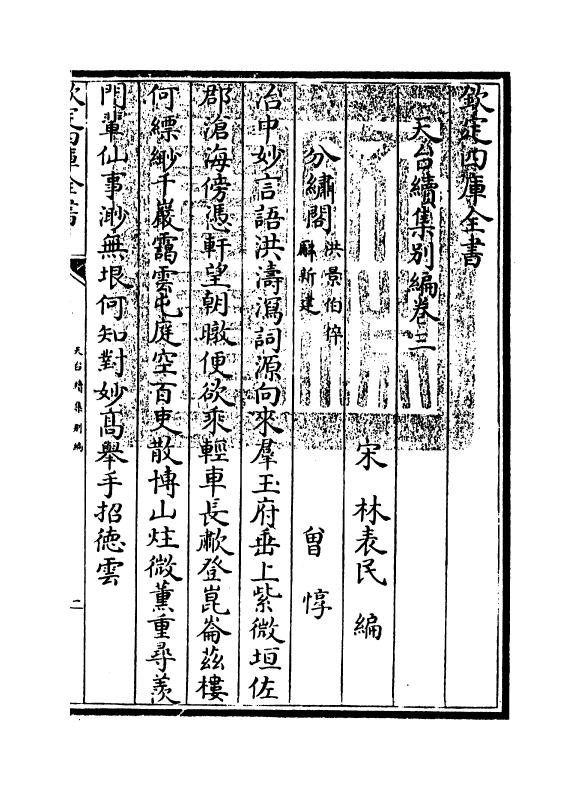 欽定四庫全書
天台續集別編卷三
宋 林表民 編
分繡閣 洪景伯倅廨新建 曾惇
冶中妙言語洪濤瀉詞源向來羣玉府垂上紫微垣佐
郡滄海傍憑軒望朝暾便欲乘輕車長歗登崑崙茲樓
何縹緲千巖靄雲屯庭空百吏散博山炷微薰重尋羨
門輩仙事渺無垠何知對妙髙舉手招德雲
欽定四庫全書
天台續集别編